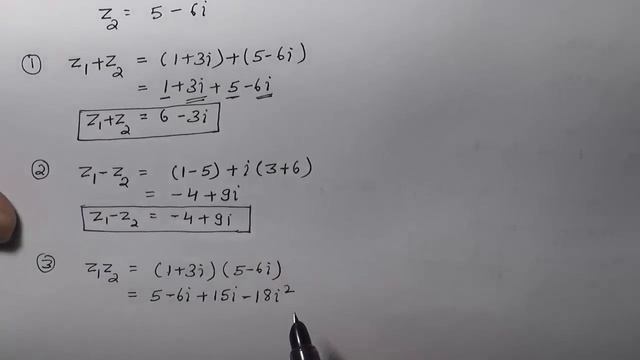 z₂ = 5 - 6i
① z₁+z₂ = (1+3i)+(5-6i)
= 1+3i+5-6i
z₁+z₂ = 6-3i
② z₁-z₂ = (1-5)+i(3+6)
= -4+9i
z₁-z₂ = -4+9i
③ z₁z₂ = (1+3i)(5-6i)
= 5-6i+15i-18i²